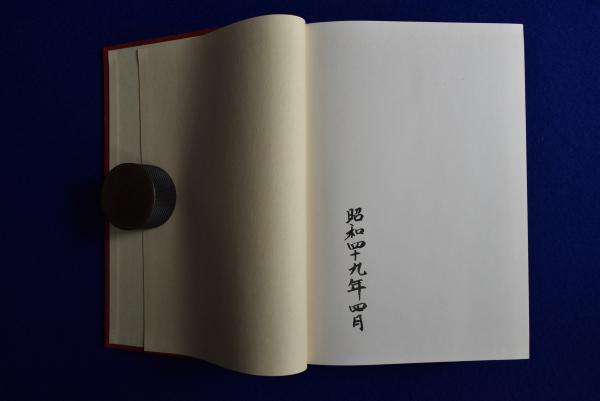 昭和四十九年四月